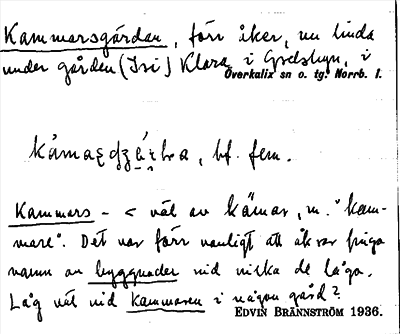 Kammarsgärdan, förr åker, nu linda
under gården (Isi) Klara i Grelsbyn, i
Överkalix sn o. tg. Norrb. l.
bf. fem.
Kammars- < väl av kåmar, m. "kam-
mare". Det var förr vanligt att åkrar finga
namn av byggnader vid vilka de låga.
Låg väl vid kammaren i någon gård?
EDVIN BRÄNNSTRÖM 1936.